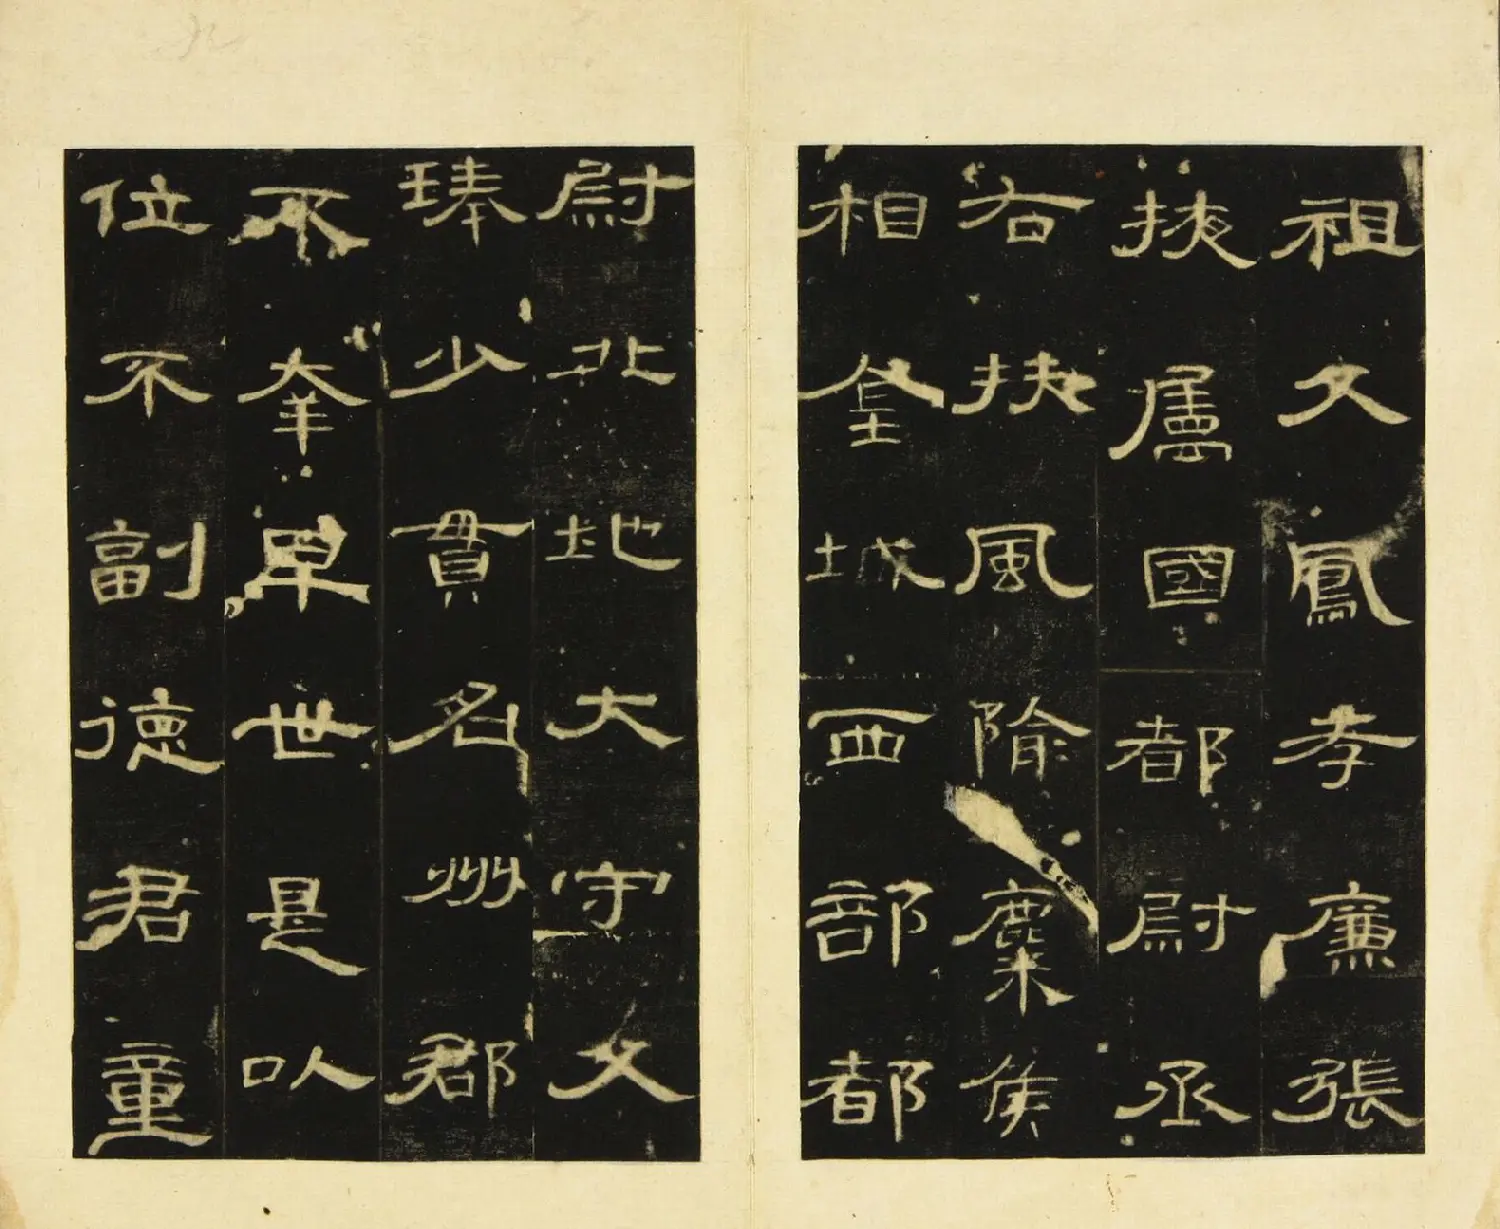 祖父鳳孝廉張
掖屬國都尉丞
右扶風隃麋侯
相金城西部都
尉北地大守父
琫少貫名州郡
不幸早世是以
位不副德君童